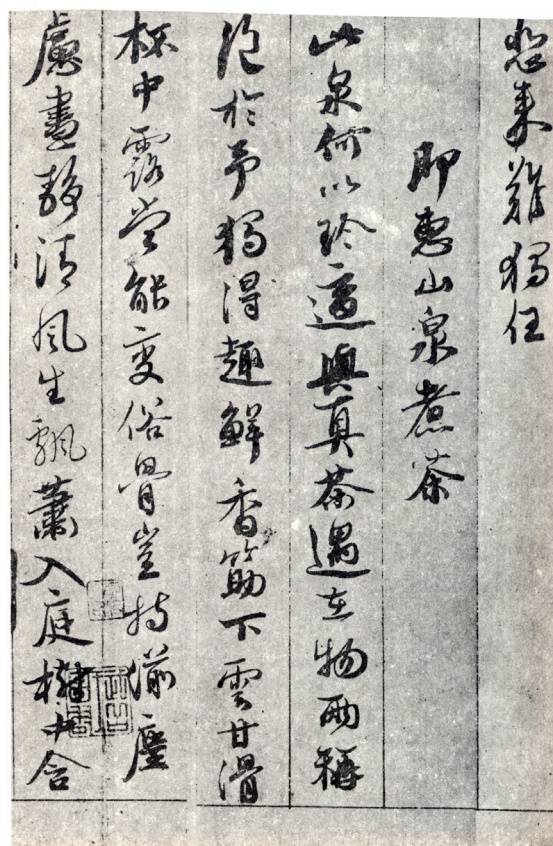 愁来難獨任
即惠山泉煮茶
此泉何以珍適與真茶遇在物兩稱
絕於予獨得趣鮮香筯下雲甘滑
杯中露當能變俗骨豈特湔塵
慮晝靜清風生飄蕭入庭樹中含